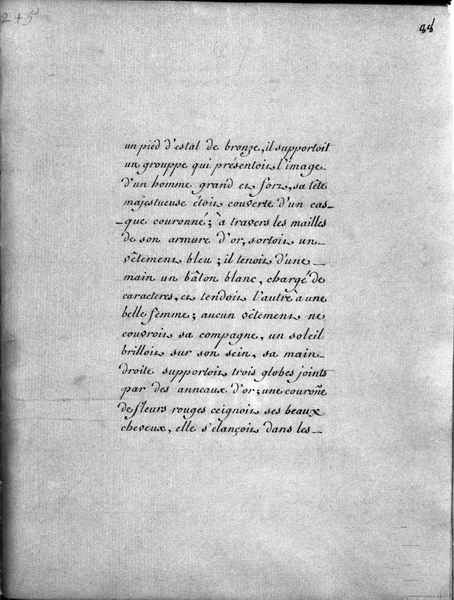 245
un pied d'estal de bronze, il supportoit
un grouppe qui présentoit l'image
d'un homme grand et fort, sa tête
majestueuse étoit couverte d'un cas-
-que couronné; à travers les mailles
de son armure d'or, sortoit un
vêtement bleu; il tenoit d'une
main un bâton blanc, chargé de
caracteres, et tendoit l'autre à une
belle femme; aucun vêtement ne
couvroit sa compagne, un soleil
brilloit sur son sein, sa main
droite supportoit trois globes joints
par des anneaux d'or; une couroñe
de fleurs rouges ceignoit ses beaux
cheveux, elle s'élançoit dans les